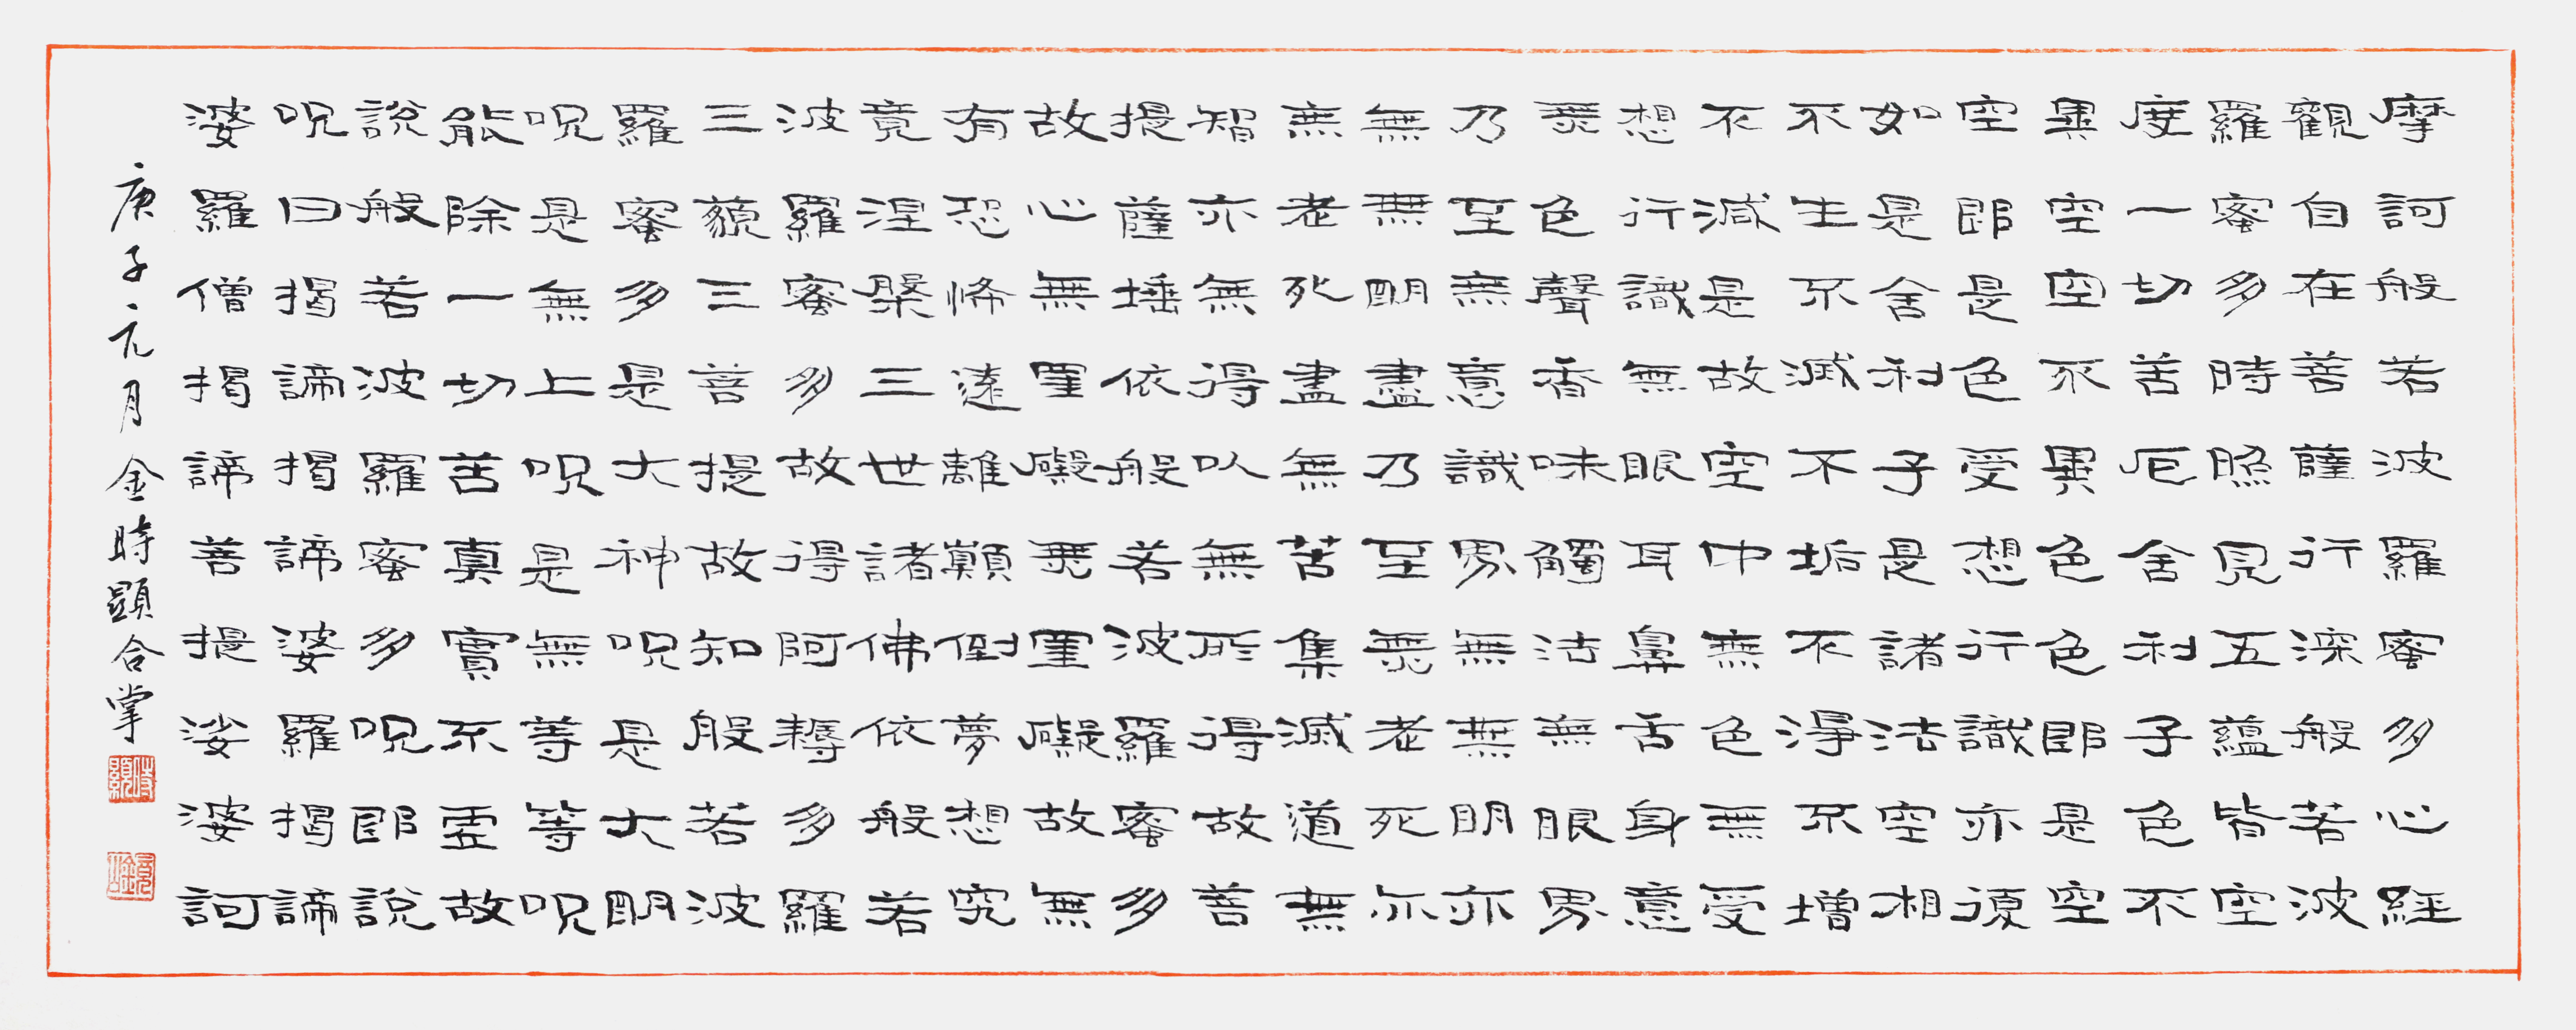 摩訶般若波羅蜜多心經
觀自在菩薩行深般若波
羅蜜多時照見五蘊皆空
度一切苦厄舍利子色不
異空空不異色色即是空
空即是色受想行識亦復
如是舍利子是諸法空相
不生不滅不垢不淨不增
不減是故空中無色無受
想行識無眼耳鼻舌身意
無色聲香味觸法無眼界
乃至無意識界無無明亦
無無明盡乃至無老死亦
無老死盡無苦集滅道無
智亦無得以無所得故菩
提薩埵依般若波羅蜜多
故心無罣礙無罣礙故無
有恐怖遠離顛倒夢想究
竟涅槃三世諸佛依般若
波羅蜜多故得阿耨多羅
三藐三菩提故知般若波
羅蜜多是大神呪是大明
呪是無上呪是無等等呪
能除一切苦真實不虛故
說般若波羅蜜多呪即說
呪曰揭諦揭諦婆羅揭諦
婆羅僧揭諦菩提娑婆訶
庚子元月金時顯合掌
時顯